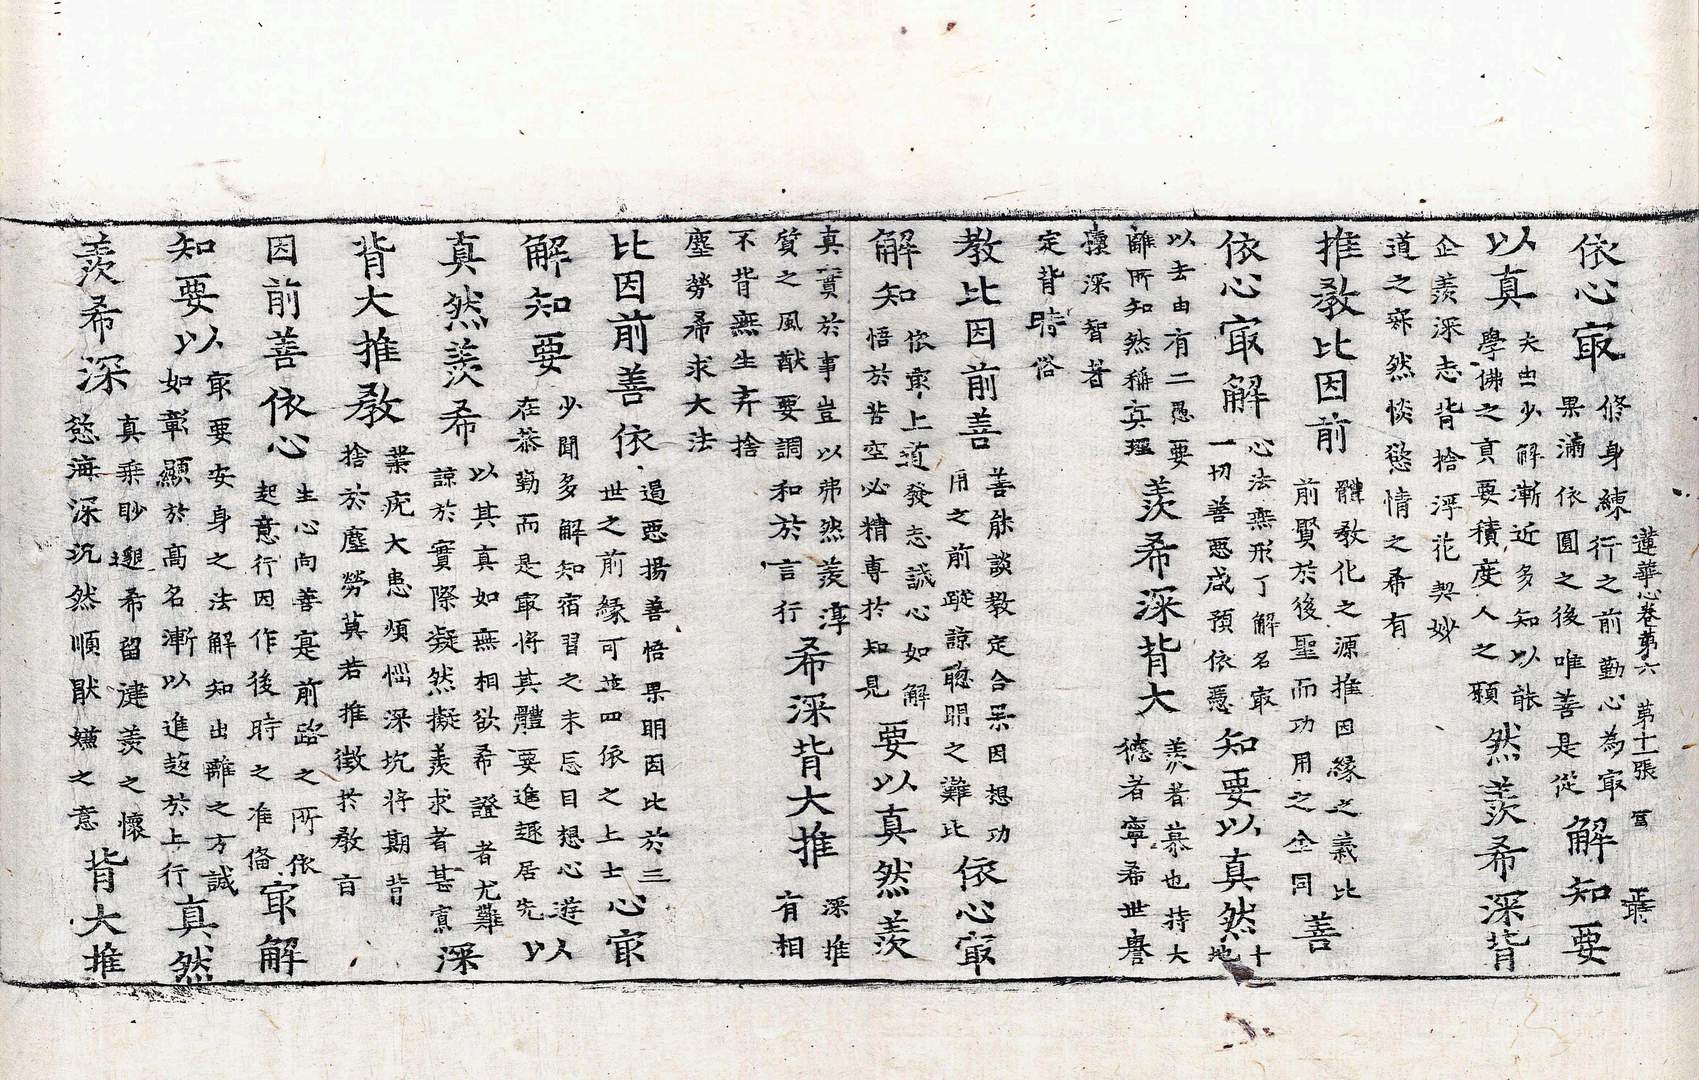 蓮華心卷第六 第十一張
依心㝡
修身練行之前勤心為㝡
果滿依圓之後唯善是從
解知要
以真
夫出少解漸近多知以能
學佛之真要積度人之願
然羨希深背
企羨深志背捨浮花契妙
道之寂然惔慾情之希有
推教比因前
體教化之源推因緣之義比
前賢於後聖而功用之全同
善
依心㝡解
心法無形了解名㝡
一切善惡咸預依憑
知要以真然
十
地
以去由有二愚要
離所知然稱真理
羨希深背大
羨者慕也持大
德者寧希世譽
懷深智者
定背時俗
教比因前善
善能談教定合果因想功
用之前蹤諒聰明之難比
依心㝡
解知
依㝡上道發志誠心如解
悟於苦空必精專於知見
要以真然羨
真實於事豈以弗然羨淳
質之風猷要調和於言行
希深背大推
深推
有相
不背無生弃捨
塵勞希求大法
比因前善依
遏惡揚善悟果明因比於三
世之前緣可並四依之上士
心㝡
解知要
少聞多解知宿習之未忘目想心遊
在恭勤而是㝡將其體要進趣居先
以
真然羨希
以其真如無相欲希證者尤難
諒於實際凝然擬羨求者甚寡
深
背大推教
業疣大患煩惱深坑將期背
捨於塵勞莫若推徵於教旨
因前善依心
生心向善寔前路之所依
起意行因作後時之准俻
㝡解
知要以
㝡要安身之法解知出離之方誠
如彰顯於高名漸以進趍於上行
真然
羨希深
真乘眇邈希留漣羨之懷
慾海深沉然順猒嫌之意
背大推